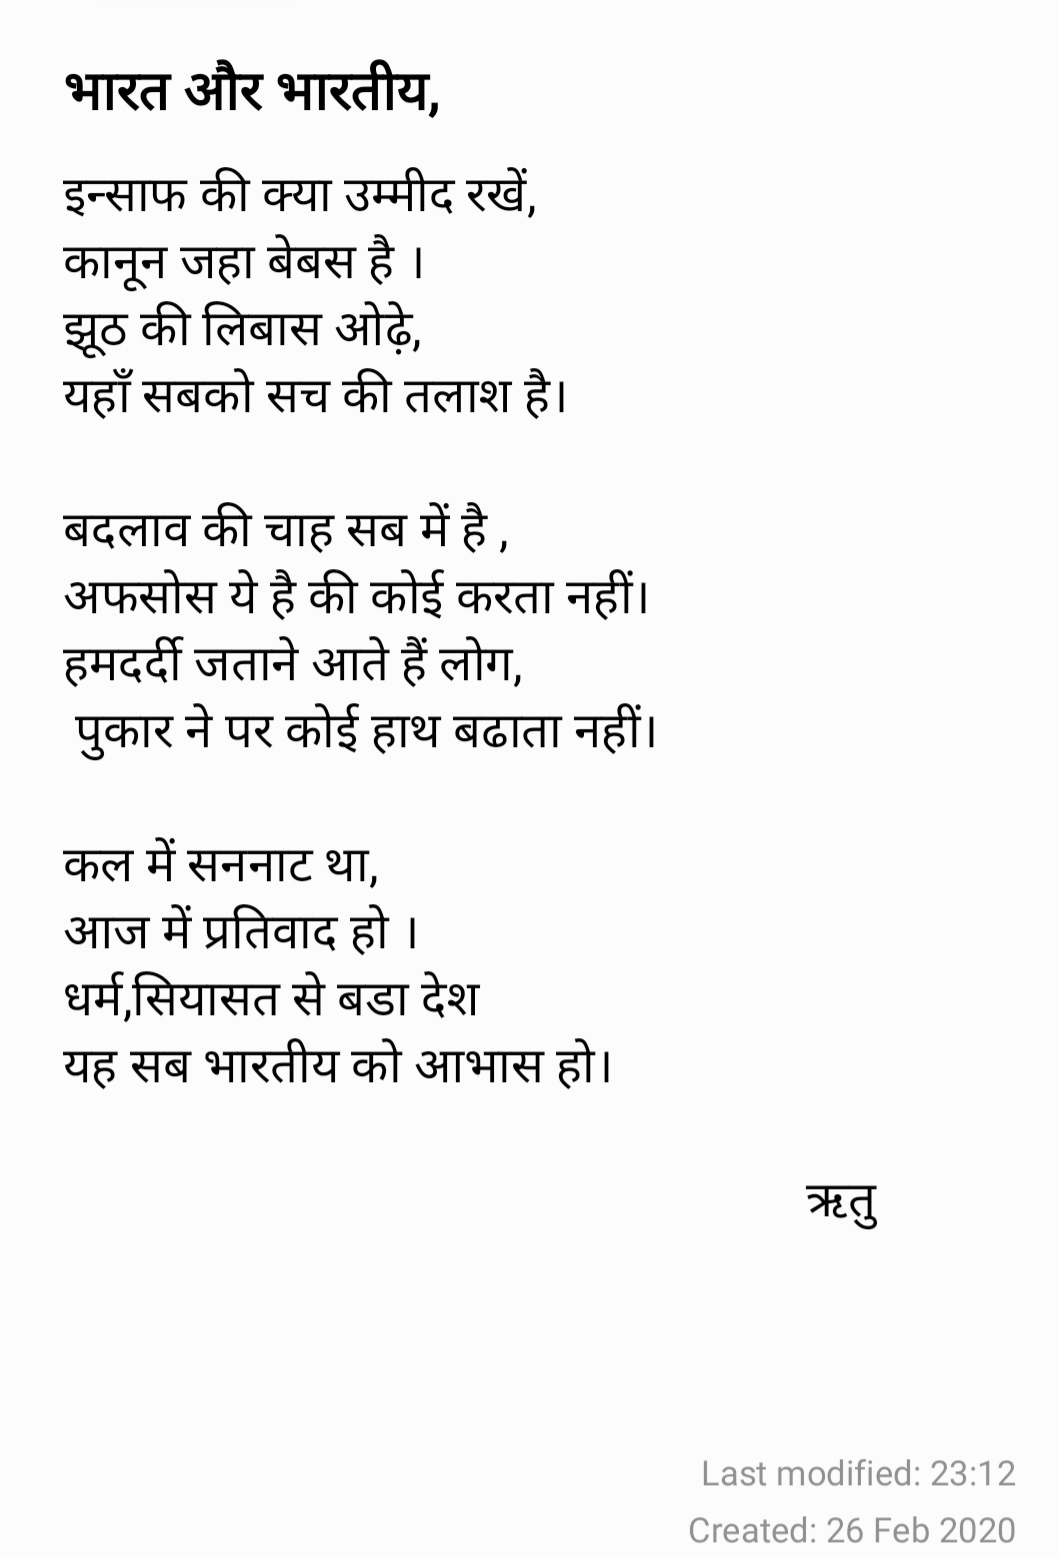 भारत और भारतीय,
इन्साफ की क्या उम्मीद रखें,
कानून जहा बेबस है ।
झूठ की लिबास ओढ़े,
यहाँ सबको सच की तलाश है।
बदलाव की चाह सब में है ,
अफसोस ये है की कोई करता नहीं।
हमदर्दी जताने आते हैं लोग,
पुकार ने पर कोई हाथ बढाता नहीं।
कल में सननाट था,
आज में प्रतिवाद हो ।
धर्म,सियासत से बडा देश
यह सब भारतीय को आभास हो।
ऋतु
Last modified: 23:12
Created: 26 Feb 2020